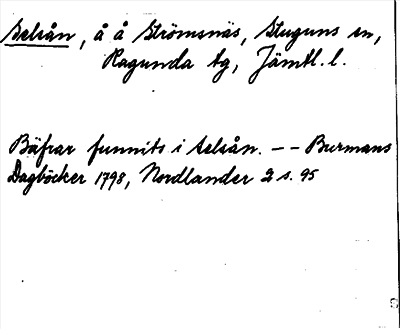 Selsån, å å Strömsnäs, Stuguns sn,
Ragunda tg, Jämtl. l.
Bäfrar funnits i Selsån. -- Burmans
Dagböcker 1798, Nordlander 2 s. 95